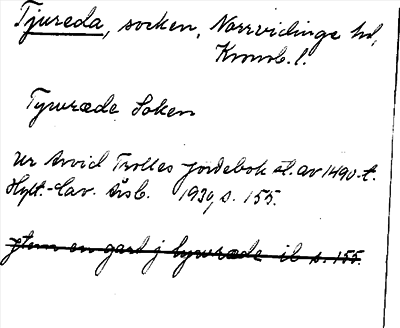 Tjureda, socken, Norrvidinge hd,
Kronob. l.
Tywræde Soken
Ur Arvid Trolles jordebok sl. av 1490-t.
Hylt.-Cav. Årsb. 1939, s. 155.
jtem en gard j tywræde ib s. 155.